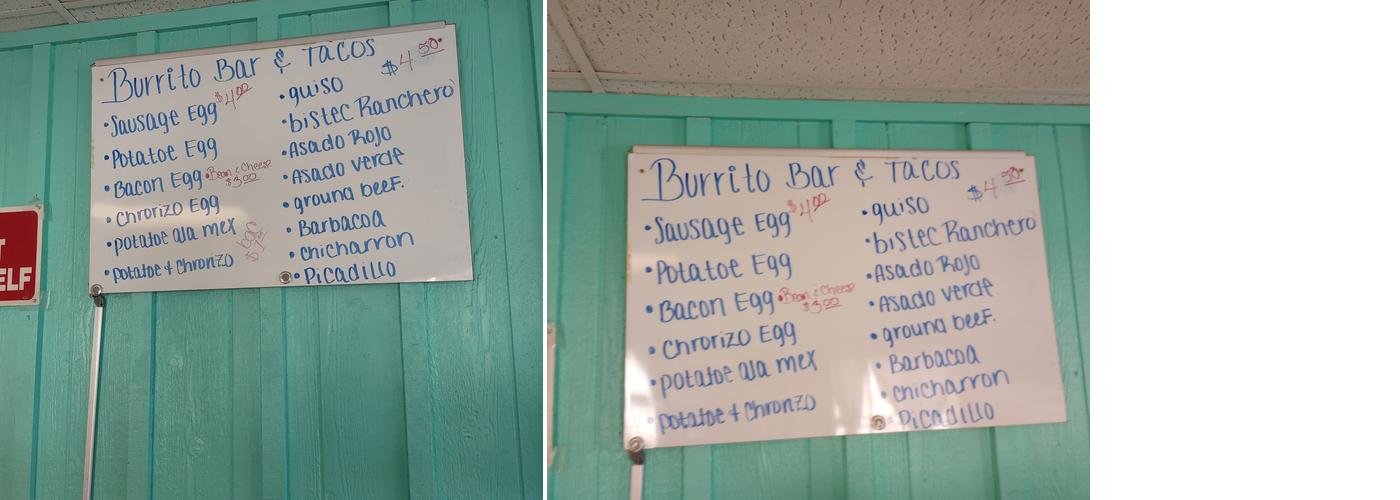 Burrito Bar & Tacos
$4.00
$4.50
• Sausage Egg
• Potatoe Egg
• Bacon Egg
• Bean & Cheese
$3.00
• Chrorizo Egg
• potatoe ala mex
• potatoe + Chronzo
• guiso
• bistec Ranchero
• Asado Rojo
• Asado verde
• ground beef.
• Barbacoa
• chicharron
• Picadillo
T
ELF
Burrito Bar & Tacos
$4.00
$4.50
• Sausage Egg
• Potatoe Egg
• Bacon Egg
• Bean & Cheese
$3.00
• Chrorizo Egg
• potatoe ala mex
• potatoe + Chronzo
• guiso
• bistec Ranchero
• Asado Rojo
• Asado verde
• ground beef.
• Barbacoa
• chicharron
• Picadillo